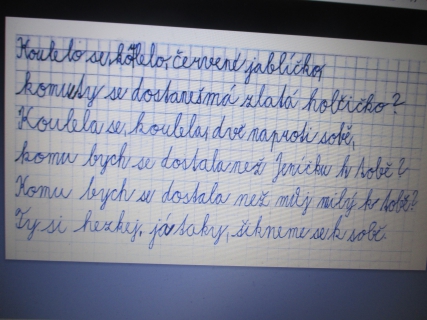 Koulelo se koulelo, červené jablíčko,
komu ty se dostaneš má zlatá holčičko?
Koulela se, koulela, dvě naproti sobě,
komu bych se dostala než Jeníčku k tobě?
Komu bych se dostala než můj milý k tobě?
Ty si hezkej, já taky, šikneme se k sobě.